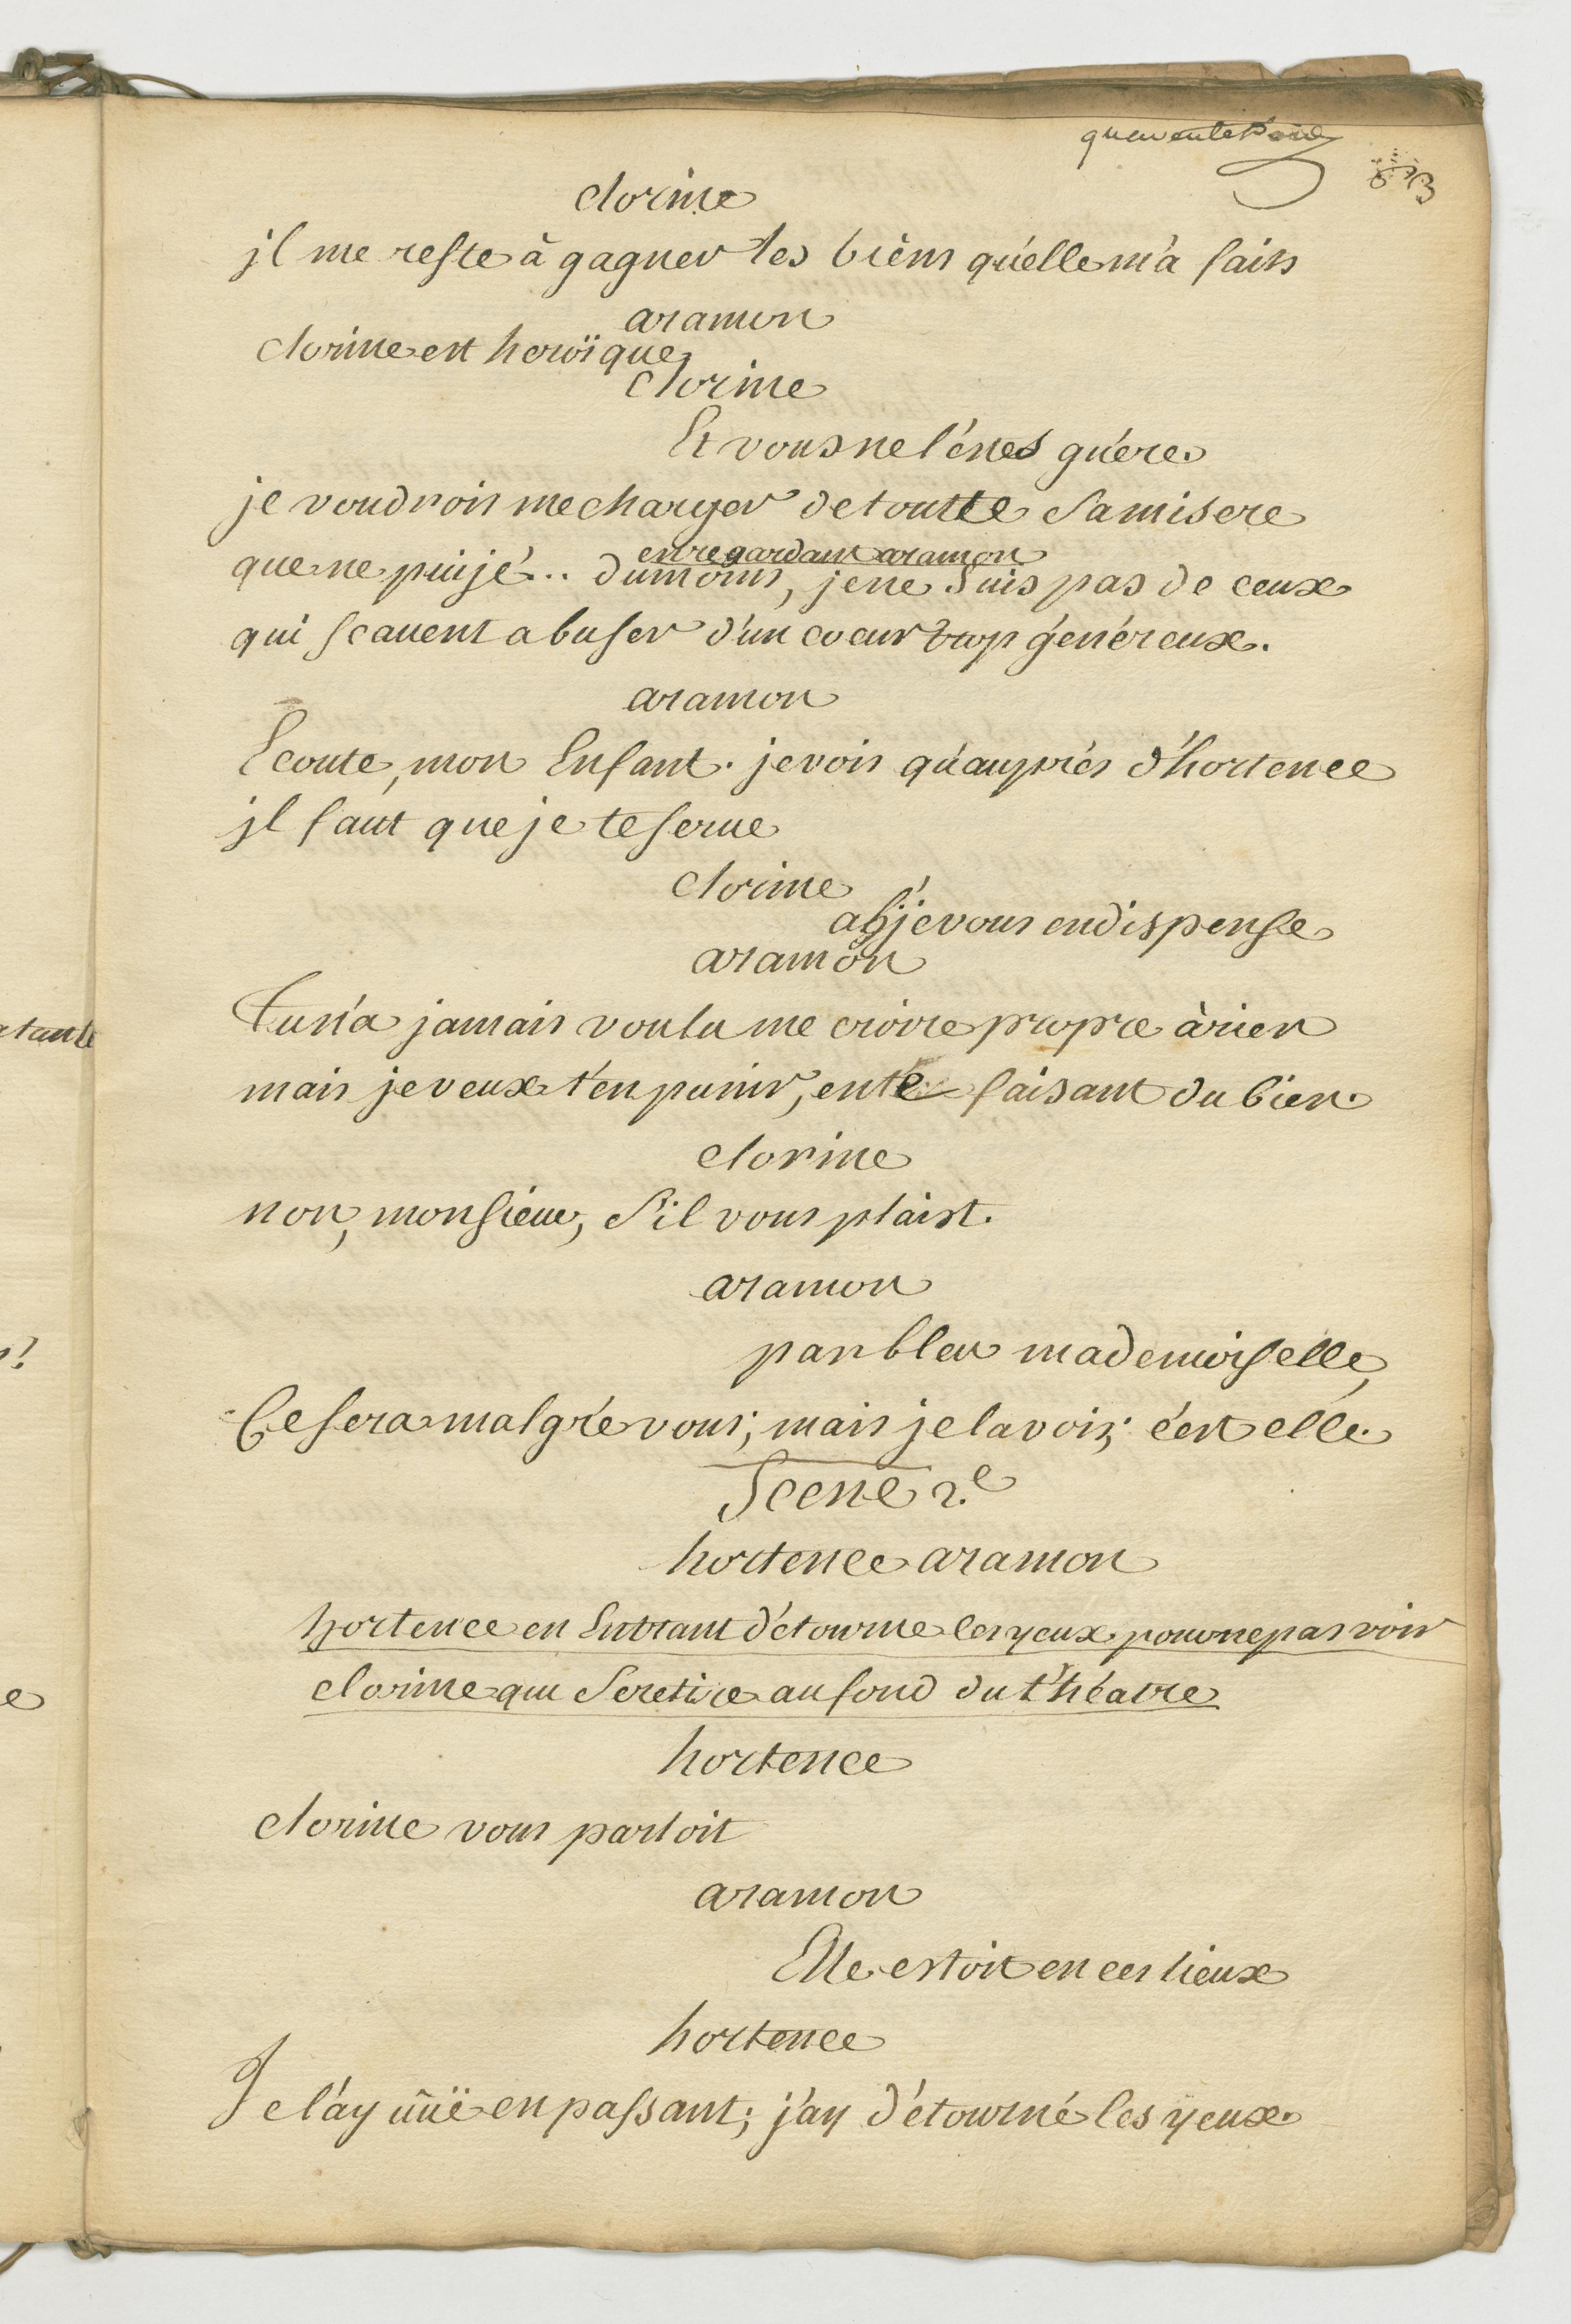 quarente trois
clorine
jl me reste à gagner les biens qu'elle m'a faits
aramon
clorine est heroïque
clorine
Et vous ne l'étes guére
je voudrois me charger de toutte sa misere
en regardant aramon
que ne puijé... du moins, je ne suis pas de ceux
qui sçauent abuser d'un coeur trop généreux.
aramon
Ecoute, mon Enfant. je vois qu'auprés d'hortence
jl faut que je te serue
clorine
ah! je vous en dispense
aramon
Tu n'a jamais voulu me croire propre à rien
mais je veux t'en punir, en te faisant du bien.
clorine
non, monsieur, s'il vous plaist.
aramon
parbleu mademoiselle,
Ce sera malgré vous; mais je la vois; c'est elle.
Scene 2.e
hortence aramon
hortence en Entrant détourne les yeux pour ne pas voir
clorine qui se retire au fond du théatre
hortence
clorine vous parloit
aramon
Elle estoit en ces lieux
hortence
Je l'ay uüe en passant; j'ay détourné les yeux.
atante
s!
e